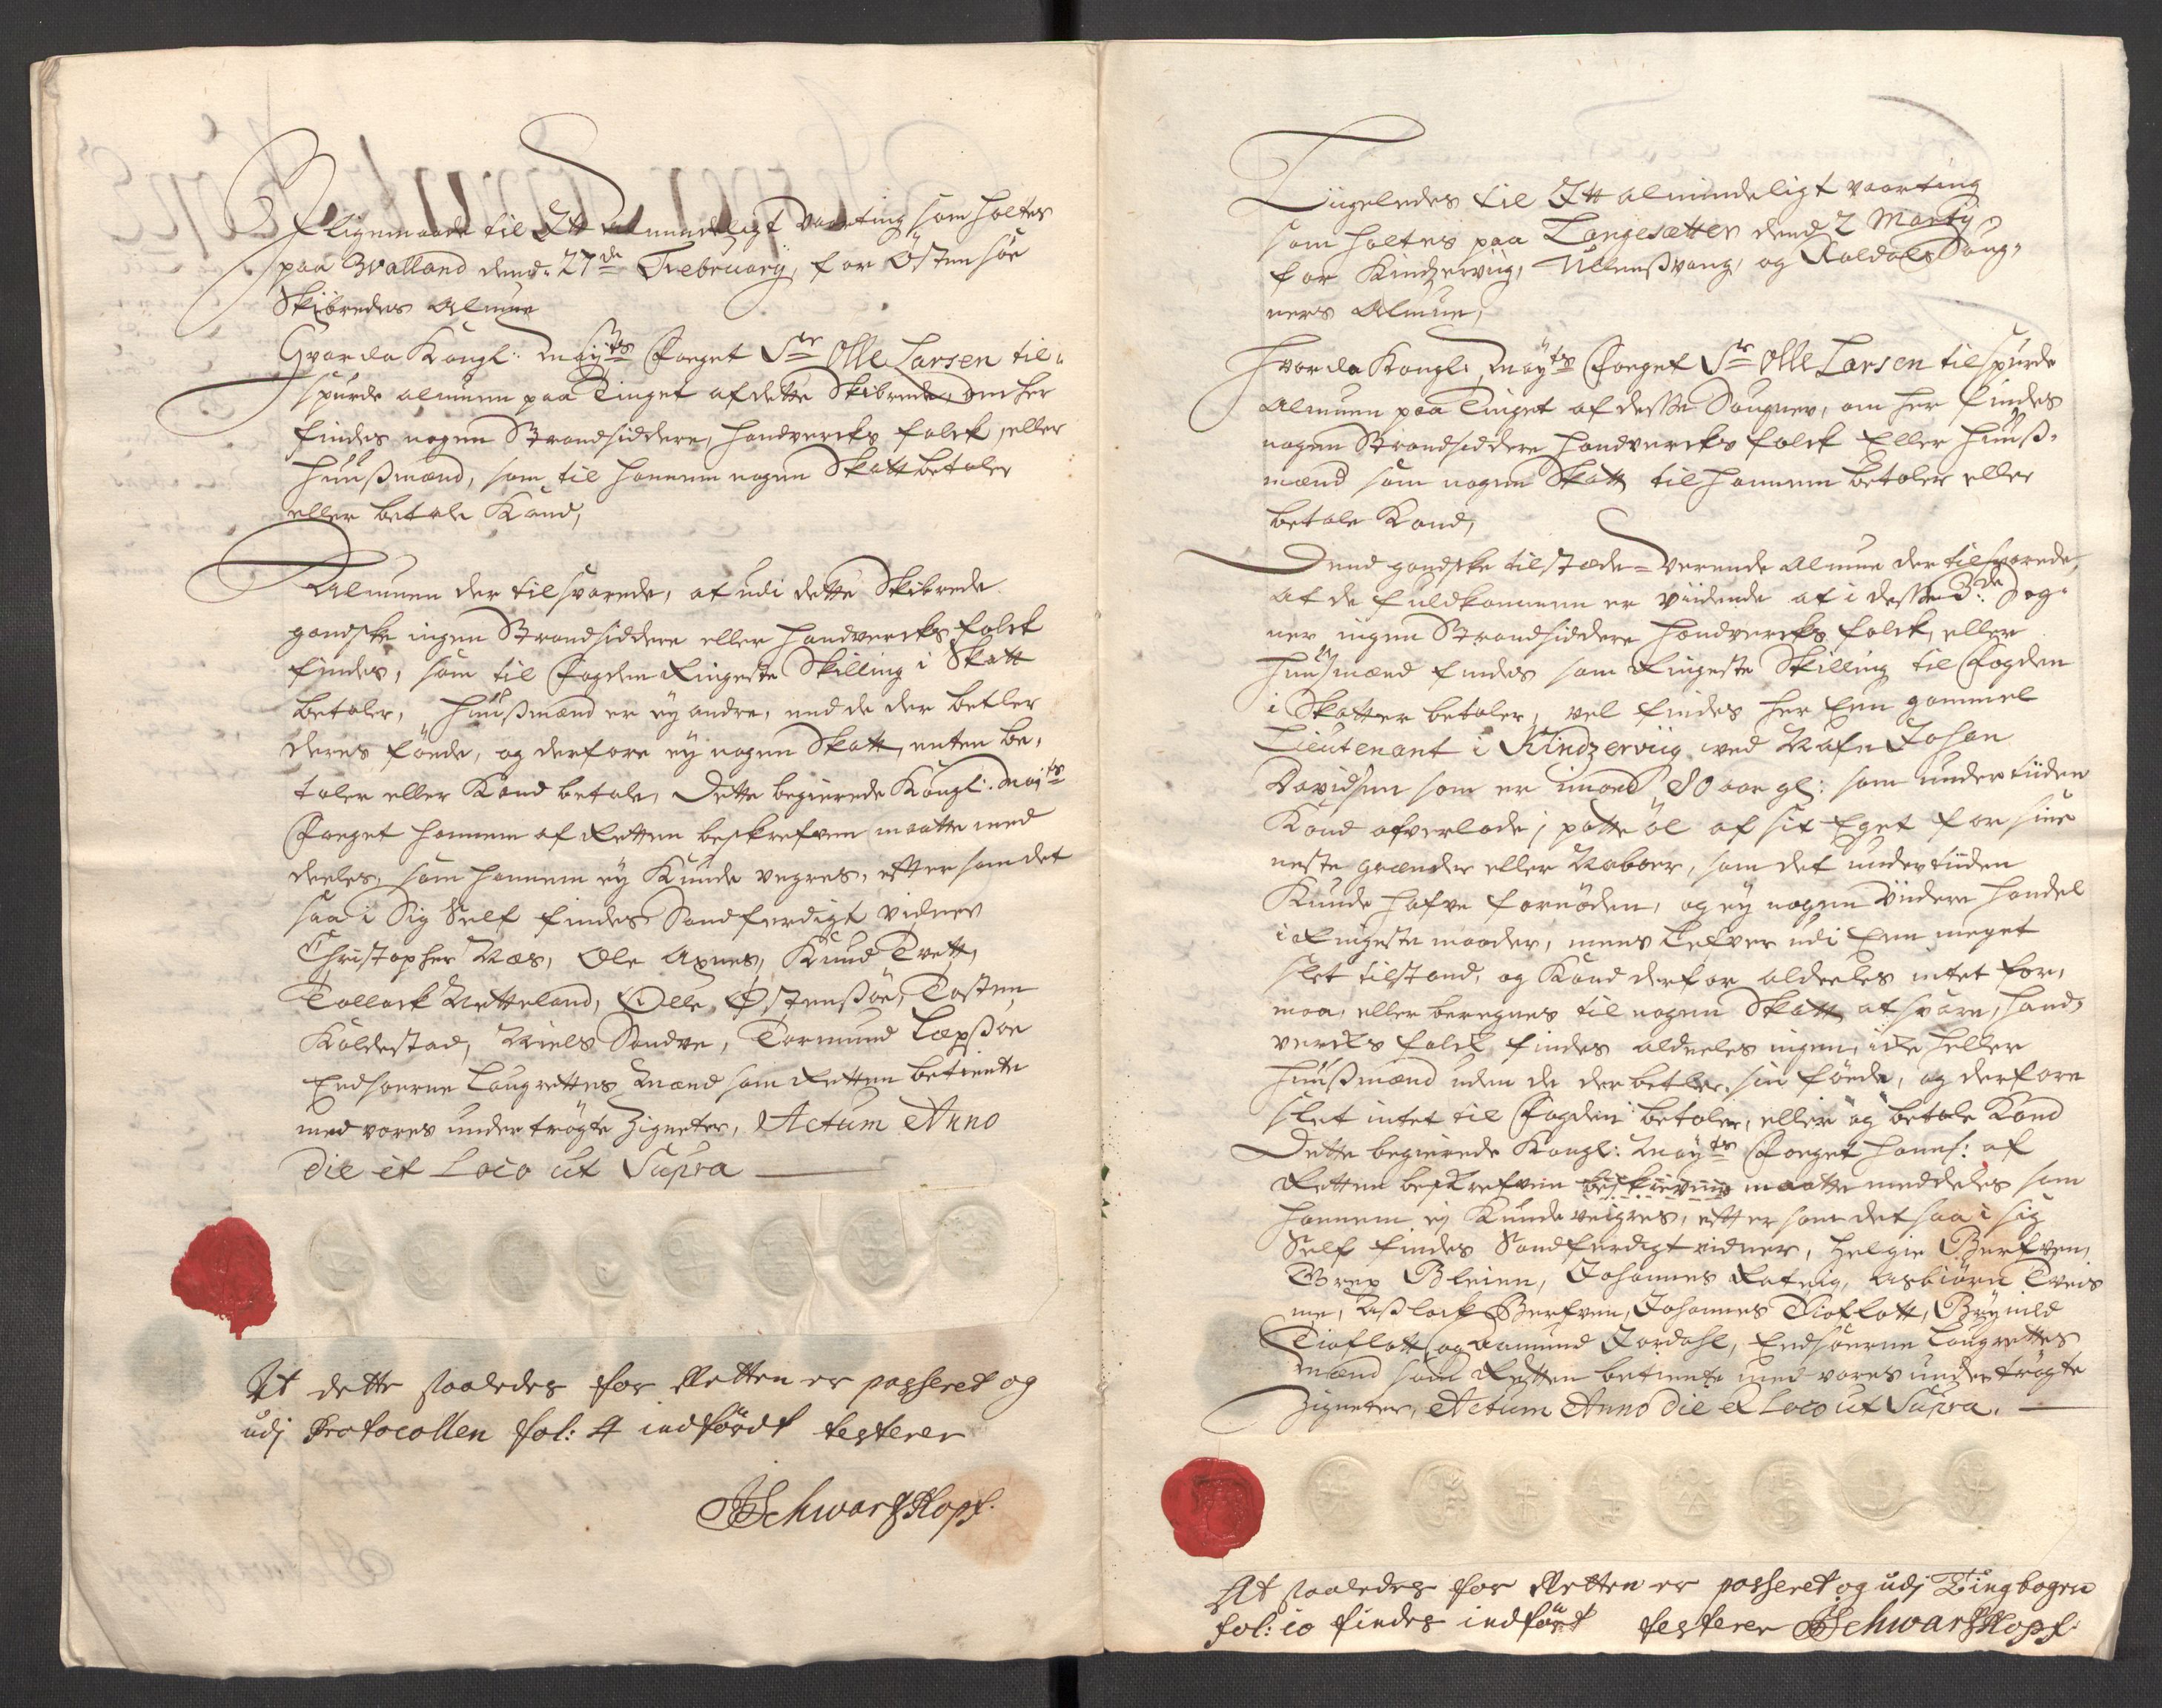 I Ligemaade til Itt Almindeligt Vaarting som holtes
paa Walland dend. 27de February, for Östensöe
Skibredes Almue
Hvor da Kongl: Maÿts Foeget Sr Olle Larsen til-
spurde almuen paa Tinget af dette Skibrede, om her
findes nogen Strandsiddere, handvercks folck, eller
huußmænd, som til hannem nogen Skatt betaler
eller betale Kand,
Almuen der til svarede, at udi dette Skibrede
gandske ingen Strandsiddere eller handvercks folck
findes, som til Fogden Ringeste Skilling i Skatt
betaler, huußmænd er ey andre, end de der betler
deres föede, og derfore ey nogen Skatt, enten be-
taler eller Kand betale, Dette begierede Kongl: Maÿts
Foeget hannem af Retten beskrefven maatte med
deeles, som hannem eÿ Kunde vegres, efftersom det
saa i Sig Self findes Sandferdigt vidner
Christopher Næs, Ole Axnes, Knud Tvett,
Tollack Netteland, Olle Östensöe, Tosten
Koldestad, Niels Sandve, Tormund Lepsöe
Eedsorne Laugrettes Mænd som Retten betiente
med vores undertrögte Zigneter, Actum Anno
Die et Loco ut Supra
At dette saaledes for Retten er passeret og
udj Protocollen fol: 4 indfördt testerer
JSchwartzKopf.
Liigeledes til Itt almindeligt vaarting
som holtes paa Langesætter dend 2 Martÿ
for Kindzerviig, Ullensvang, og Roldals Soug-
ners Almue,
Hvor da Kongl: Maÿts Foeget Sr Olle Larsen tilspurde
Almuen paa Tinget af desse Sougner, om her findes
nogen Strandsiddere handvercks folck Eller huuß-
mænd som nogen Skatt til hannem betaler eller
betale Kand,
Dend gandske tilstæde-verende Almue der til svarede,
at de fuldkommen er viidende at i desse 3de Sog-
ner ingen Strandsiddere handvercks folck, eller
huusmænd findes som Ringeste Skilling til Fogden
i Skatter betaler, vel findes her Een gammel
Lieutenant i Kindzerviig ved Nafn Johan
Davidsen som er imod 80 aar gl: som undertiiden
Kand ofverlade j potte öl af sit Eget for sine
neste grander eller Naboer, som det undertiiden
Kunde hafve fornöden, og eÿ nogen viidere handel
i Ringeste maader, mens Lefver udi Een meget
slet tilstand, og Kand derfor aldeeles intet for-
maa, eller beregnes til nogen Skatt at svare, hand-
vercks folck findes aldeeles ingen, icke heller
huußmænd uden de der betler sin föede, og derfore
slet intet til Fogden betaler, eller og betale Kand
Dette begierede Kongl: Maÿts Foeget hanes: af
Retten beskrefven maatte meddeles som
hannem eÿ Kunde veigres, efftersom det saa i sig
Self findes Sandferdigt vidner, Helgie Berfven,
Brex Bleien, Johannes Ratvig, Asbiörn Tveis
me, Aßlack Berfven, Johannes Tioflatt, Brÿnild
Tioflatt, og Aamund Jordahl, Eedsorne Laugrettes
mænd som Retten betiente med vores undertrögte
Zigneter, Actum Anno Die et Loco ut Supra.
At saaledes for Retten er passeret og udj Tingbogen
fol: 10 findes indfört testerer JSchwartzKopf.